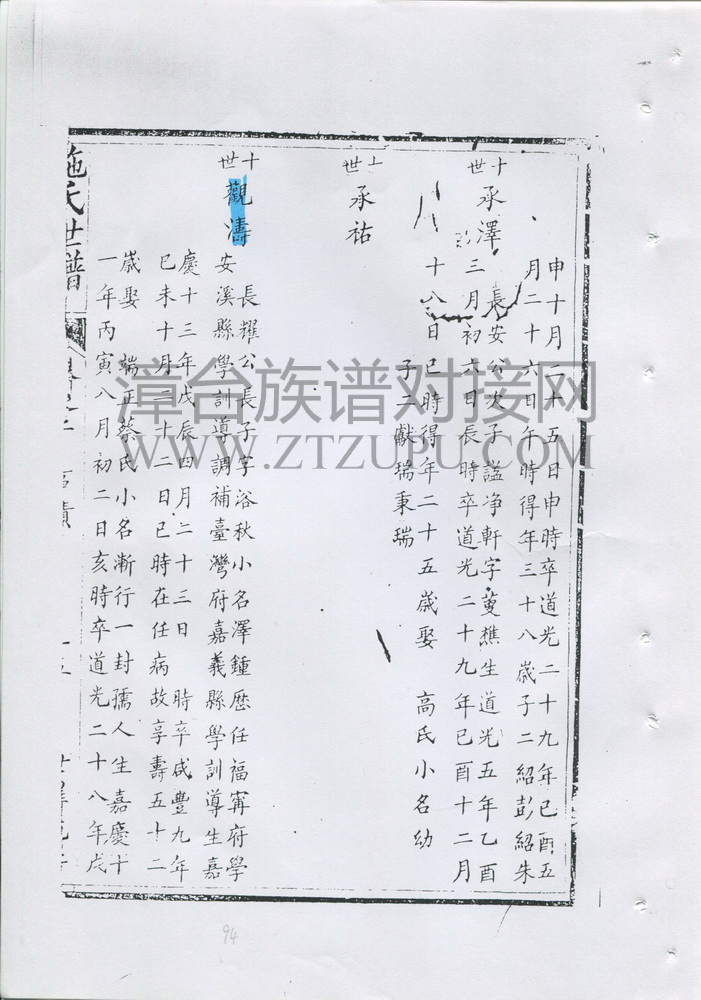 申十月二十五日申時卒道光二十九年己酉五
月二十六日午時得年三十八歲子二紹彭紹朱
十世
承澤
長安公次子諡净軒字蔓樵生道光五年乙酉
三月初六日長時卒道光二十九年己酉十二月
十八日己時得年二十五歲娶 高氏小名幼
子二獻瑞秉瑞
十世
承祐
十世
觀濤
長耀公長子字浴秋小名澤鍾歷任福寗府學
安溪縣學訓導調補臺灣府嘉義縣學訓導生嘉
慶十三年戊辰四月二十三日 時卒咸豐九年
己未十月二十二日己時在任病故享壽五十二
歲娶 端正蔡氏小名漸行一封孺人生嘉慶十
一年丙寅八月初二日亥時卒道光二十八年戊
施氏世譜
漳台族谱对接网
WWW.ZTZUPU.COM
94